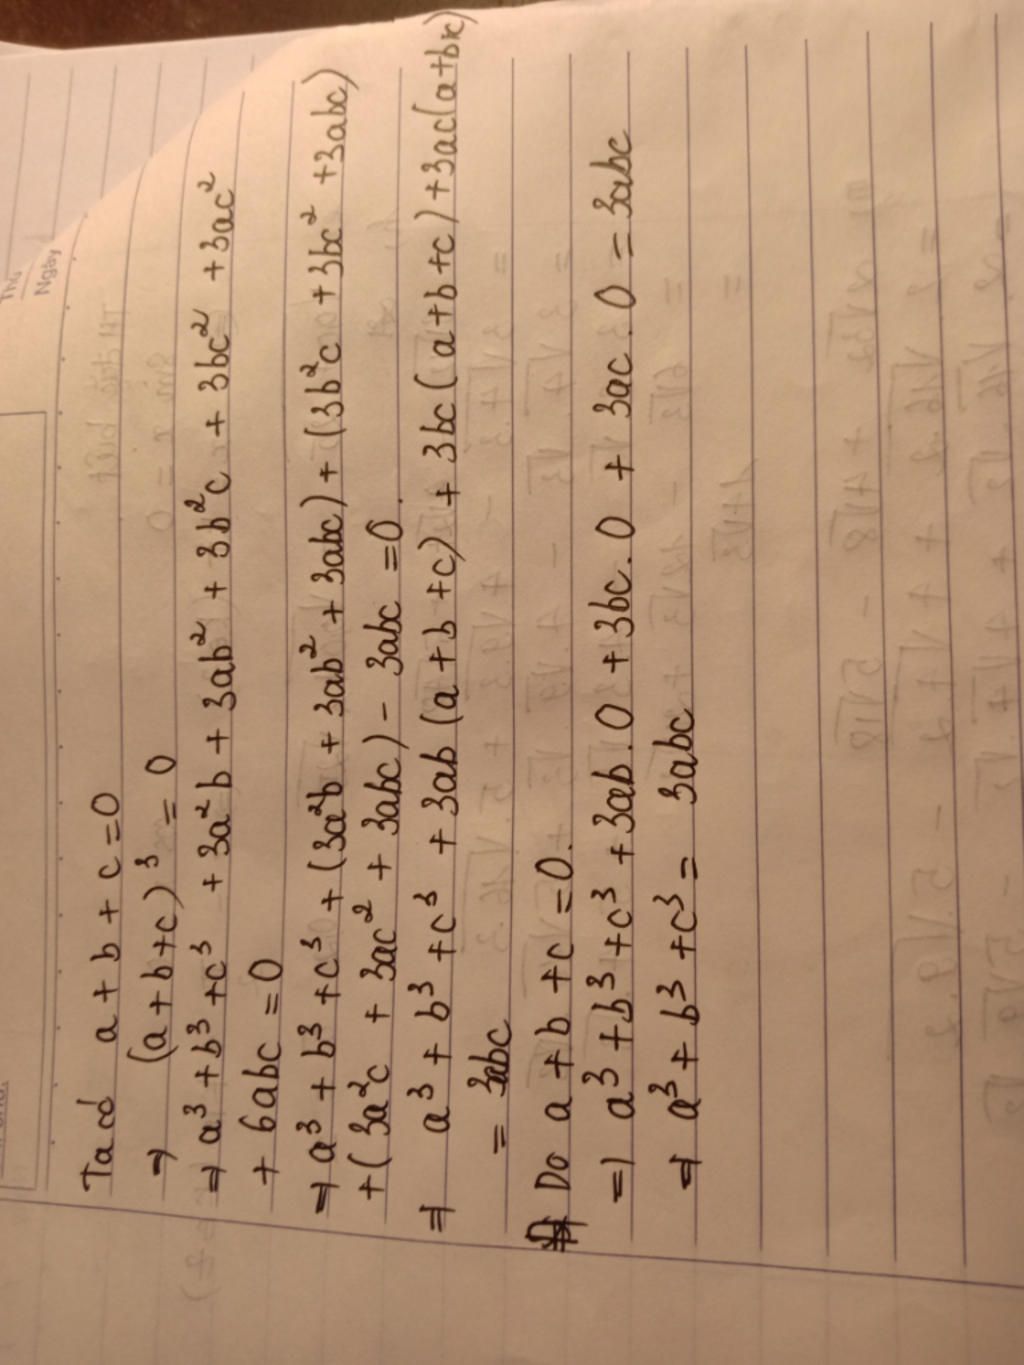 Thứ
Ngày
Ta có a + b + c = 0
⇒ (a + b + c)³ = 0
⇒ a³ + b³ + c³ + 3a²b + 3ab² + 3b²c + 3bc² + 3ac²
+ 6abc = 0
⇒ a³ + b³ + c³ + (3a²b + 3ab² + 3abc) + (3b²c + 3bc² + 3abc)
+ (3a²c + 3ac² + 3abc) - 3abc = 0.
⇒ a³ + b³ + c³ + 3ab (a + b + c) + 3bc (a + b + c) + 3ac (a + b + c)
= 3abc
Do a + b + c = 0.
⇒ a³ + b³ + c³ + 3ab.0 + 3bc.0 + 3ac.0 = 3abc
⇒ a³ + b³ + c³ = 3abc